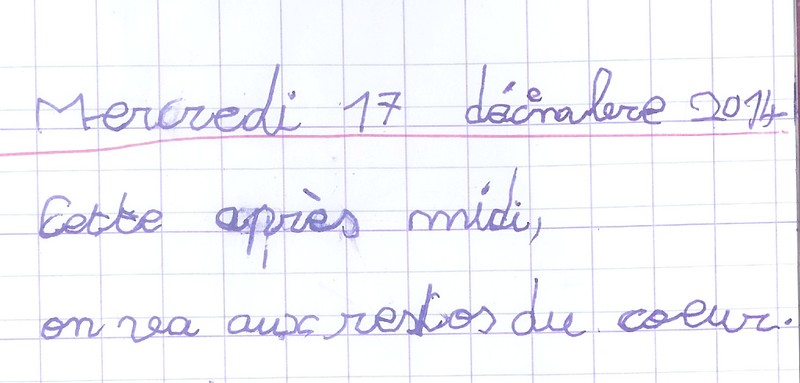 Mercredi 17 décembre 2014
Cette après midi,
on va aux restos du coeur.